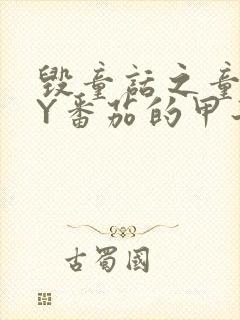 毁童话之童
Y番茄的甲
古蜀国